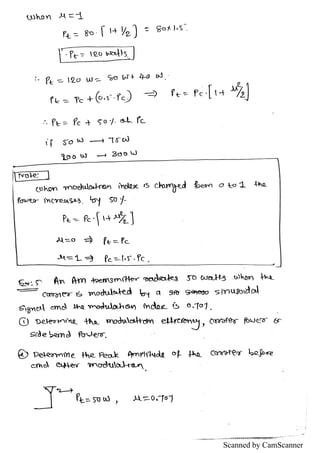 when μ=1
Pt = 80·[1+1/2] = 80×1.5
Pt = 120 watts
∴ Pt = 120 w = 80 w + 40 w.
Pt = Pc + (0.5·Pc) ⇒ Pt = Pc·[1+μ²/2]
∴ Pt = Pc + 50% of Pc
if 50 w → 75 w
200 w → 300 w
Note:
when modulation index is changed from 0 to 1 the
Power increases by 50%.
Pt = Pc·[1+μ²/2]
μ=0 ⇒ Pt = Pc
μ=1 ⇒ Pc = 1.5·Pc.
Ex:5 An Am transmitter radiates 50 watts when the
carrier is modulated by a sinusoidal
signal and the modulation index is 0.707.
① Determine the modulation efficiency, carrier power &
side band power.
② Determine the Peak Amplitude of the carrier before
and after modulation.
Pt = 50 w, μ = 0.707
Scanned by CamScanner